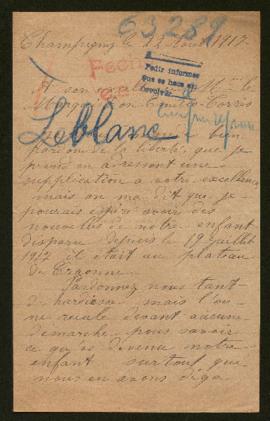 63289
Champigny le 12 Aout 1917
Fech
Pedir informes
que se hace en
devolver
A son
Leblanc
de la liberté, que je
prends en adressant une
supplication a votre excellence
mais on m'a dit que je
pourais avoir des
nouvelles de notre enfant
disparu depuis le 19 juillet
1917 il était au plateau
de Craonne.
Pardonnez nous tant
d'hardiesse, mais l'on
ne recule devant aucune
demarche pour savoir
ce qu'est devenu notre
enfant surtout que
nous en avons déja